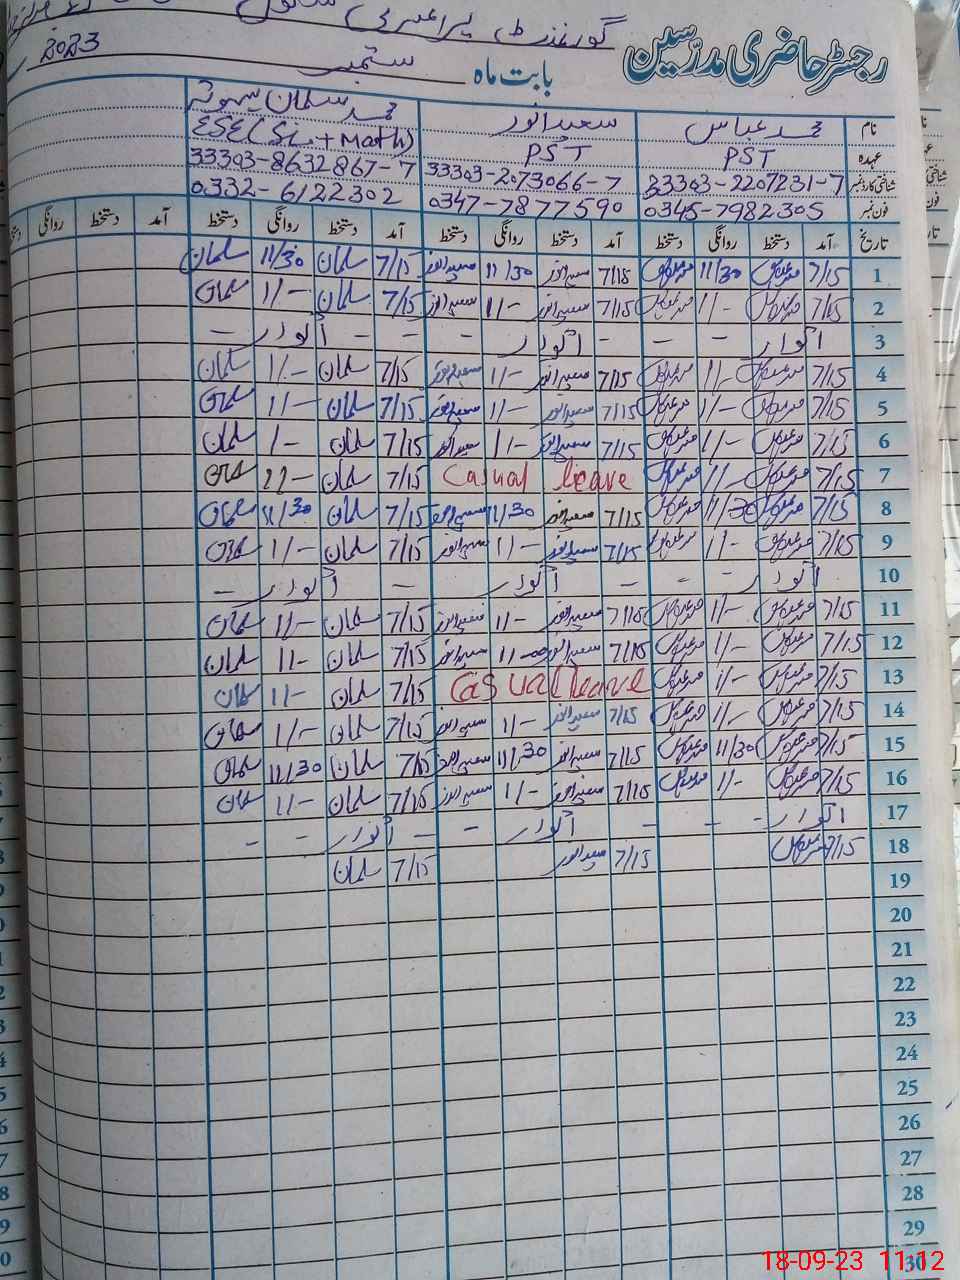 رجسٹر حاضری مدرسین گورنمنٹ پرائمری
بابت ماہ ستمبر 2023
نام محمد عباس سعید انور محمد سلمان
عہدہ PST PST ESE (Sc. + Math)
شناختی کارڈ نمبر 33303-2207231-7 33303-2073066-7 33303-8632867-7
فون نمبر 0345-7982305 0347-7877590 0332-6122302
تاریخ آمد دستخط روانگی دستخط آمد دستخط روانگی دستخط آمد دستخط روانگی دستخط آمد دستخط روانگی
1 7/15 محمد عباس 11/30 محمد عباس 7/15 سعید انور 11/30 سعید انور 7/15 سلمان 11/30 سلمان
2 7/15 محمد عباس 11/- محمد عباس 7/15 سعید انور 11/- سعید انور 7/15 سلمان 11/- سلمان
3 اتوار - - - اتوار - - اتوار -
4 7/15 محمد عباس 11/- محمد عباس 7/15 سعید انور 11/- سعید انور 7/15 سلمان 11/- سلمان
5 7/15 محمد عباس 11/- محمد عباس 7/15 سعید انور 11/- سعید انور 7/15 سلمان 11/- سلمان
6 7/15 محمد عباس 11/- محمد عباس 7/15 سعید انور 11/- سعید انور 7/15 سلمان 11/- سلمان
7 7/15 محمد عباس 11/- محمد عباس Casual leave 7/15 سلمان 11/- سلمان
8 7/15 محمد عباس 11/30 محمد عباس 7/15 سعید انور 11/30 سعید انور 7/15 سلمان 11/30 سلمان
9 7/15 محمد عباس 11/- محمد عباس 7/15 سعید انور 11/- سعید انور 7/15 سلمان 11/- سلمان
10 اتوار - - - اتوار - - اتوار -
11 7/15 محمد عباس 11/- محمد عباس 7/15 سعید انور 11/- سعید انور 7/15 سلمان 11/- سلمان
12 7/15 محمد عباس 11/- محمد عباس 7/15 سعید انور 11/- سعید انور 7/15 سلمان 11/- سلمان
13 7/15 محمد عباس 11/- محمد عباس Casual leave 7/15 سلمان 11/- سلمان
14 7/15 محمد عباس 11/- محمد عباس 7/15 سعید انور 11/- سعید انور 7/15 سلمان 11/- سلمان
15 7/15 محمد عباس 11/30 محمد عباس 7/15 سعید انور 11/30 سعید انور 7/15 سلمان 11/30 سلمان
16 7/15 محمد عباس 11/- محمد عباس 7/15 سعید انور 11/- سعید انور 7/15 سلمان 11/- سلمان
17 اتوار - - - اتوار - - اتوار - -
18 7/15 محمد عباس 7/15 سعید انور 7/15 سلمان
19
20
21
22
23
24
25
26
27
28
29
30
18-09-23 11:12